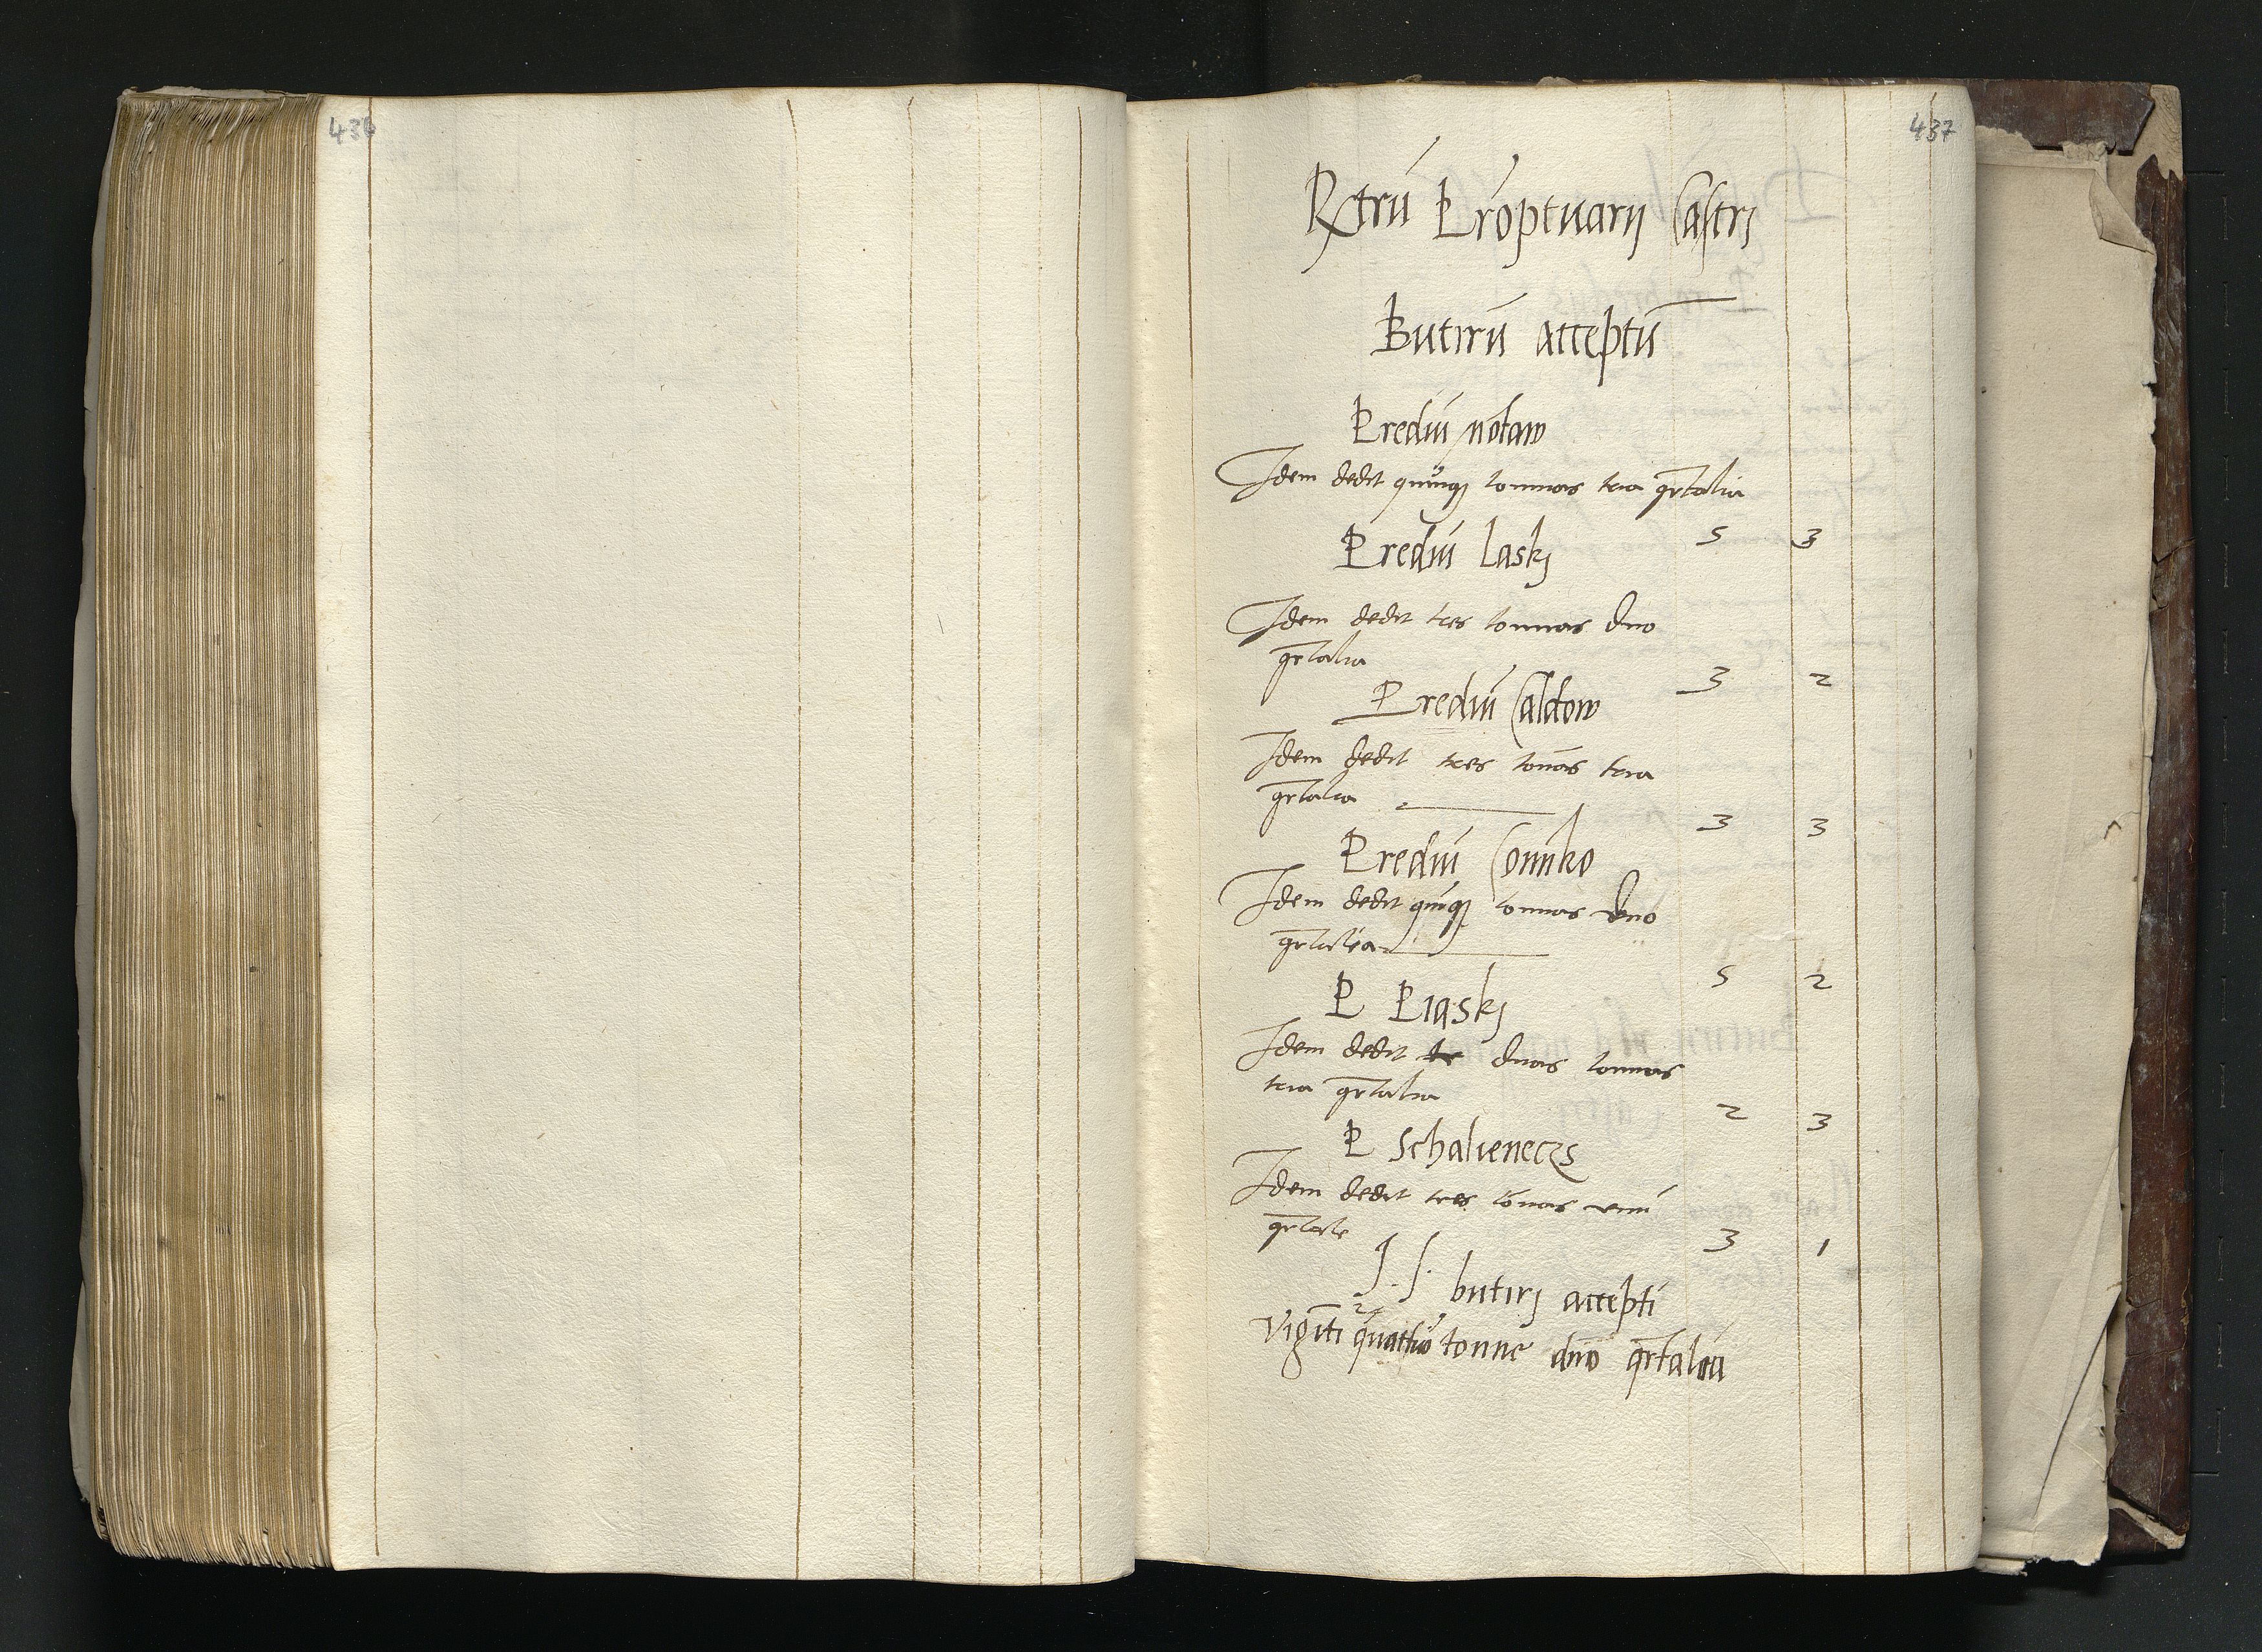 436
437
Rxtrū Proptuarij Castrj
Butirū acceptū
Prediū notaw
Idem dedit quinq₃ tonnas tria qrtalia
5 3
Prediū Laskj
Idem dedit tres tonnas duo
qrtalia
3 2
Prediū Caldow
Idem dedit tres tonas tria
qrtalia
3 3
Prediū Conniko
Idem dedit quiq₃ tonnas duo
qrtalia
5 2
P Piaskj
Idem dedit duas tonnas
tria qrtalia
2 3
P Schalieneczs
Idem dedit tres tonas unū
qrtale
3 1
J. S. butirj accepti
viginti quattuo tonne duo qrtalia